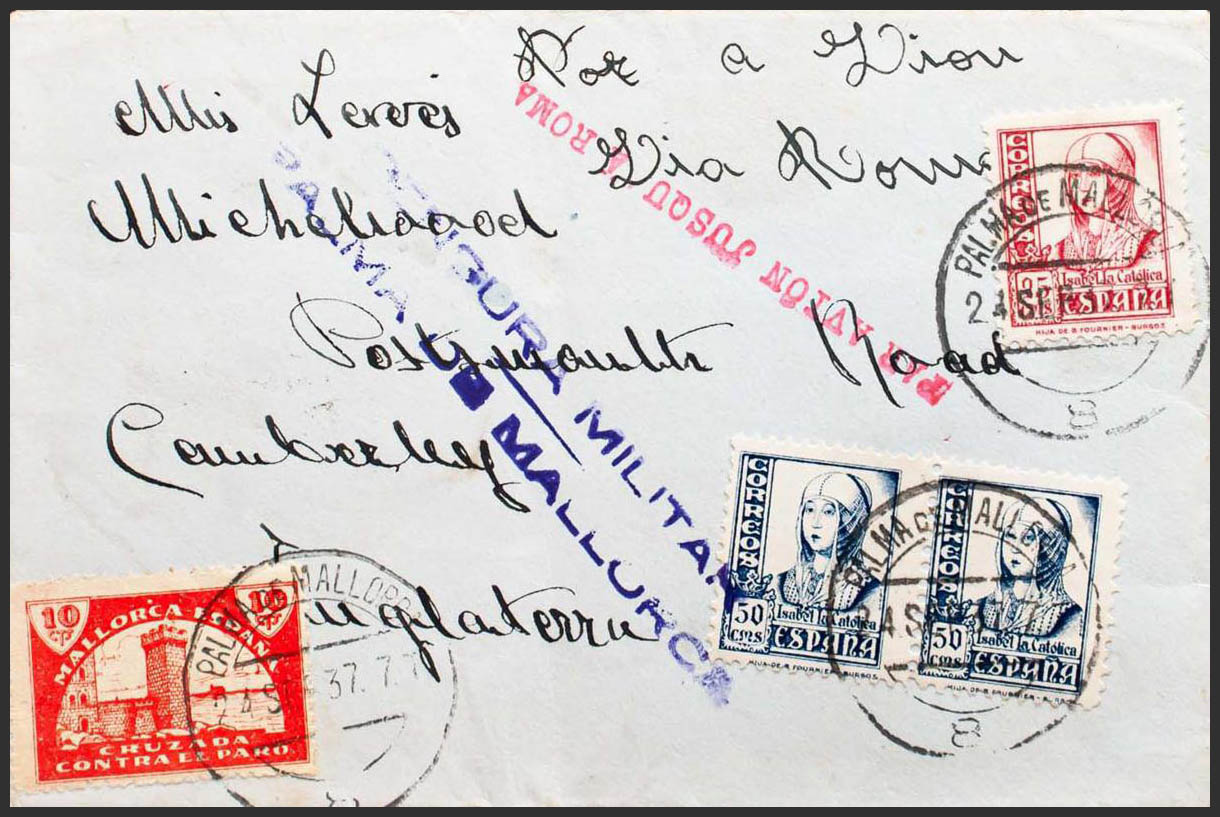 Por avion
Via Roma
Miss Leroes
Michelwood
Portsmouth Road
Camberley
Inglaterra
PAR AVIÓN JUSQU'A ROMA
CENSURA MILITAR
PALMA DE MALLORCA
CORREOS
25 CTS
Isabel la Católica
ESPAÑA
HIJA DE B. FOURNIER - BURGOS
PALMA DE MALLORCA
24 SEP
8
CORREOS
50 CTS
Isabel la Católica
ESPAÑA
HIJA DE B. FOURNIER - BURGOS
CORREOS
50 CTS
Isabel la Católica
ESPAÑA
HIJA DE B. FOURNIER - BURGOS
PALMA DE MALLORCA
24 SEP
8
10 CTS 10
MALLORCA-ESPAÑA
CRUZADA
CONTRA EL PARO
PALMA DE MALLORCA
24 SEP 37. 7.T